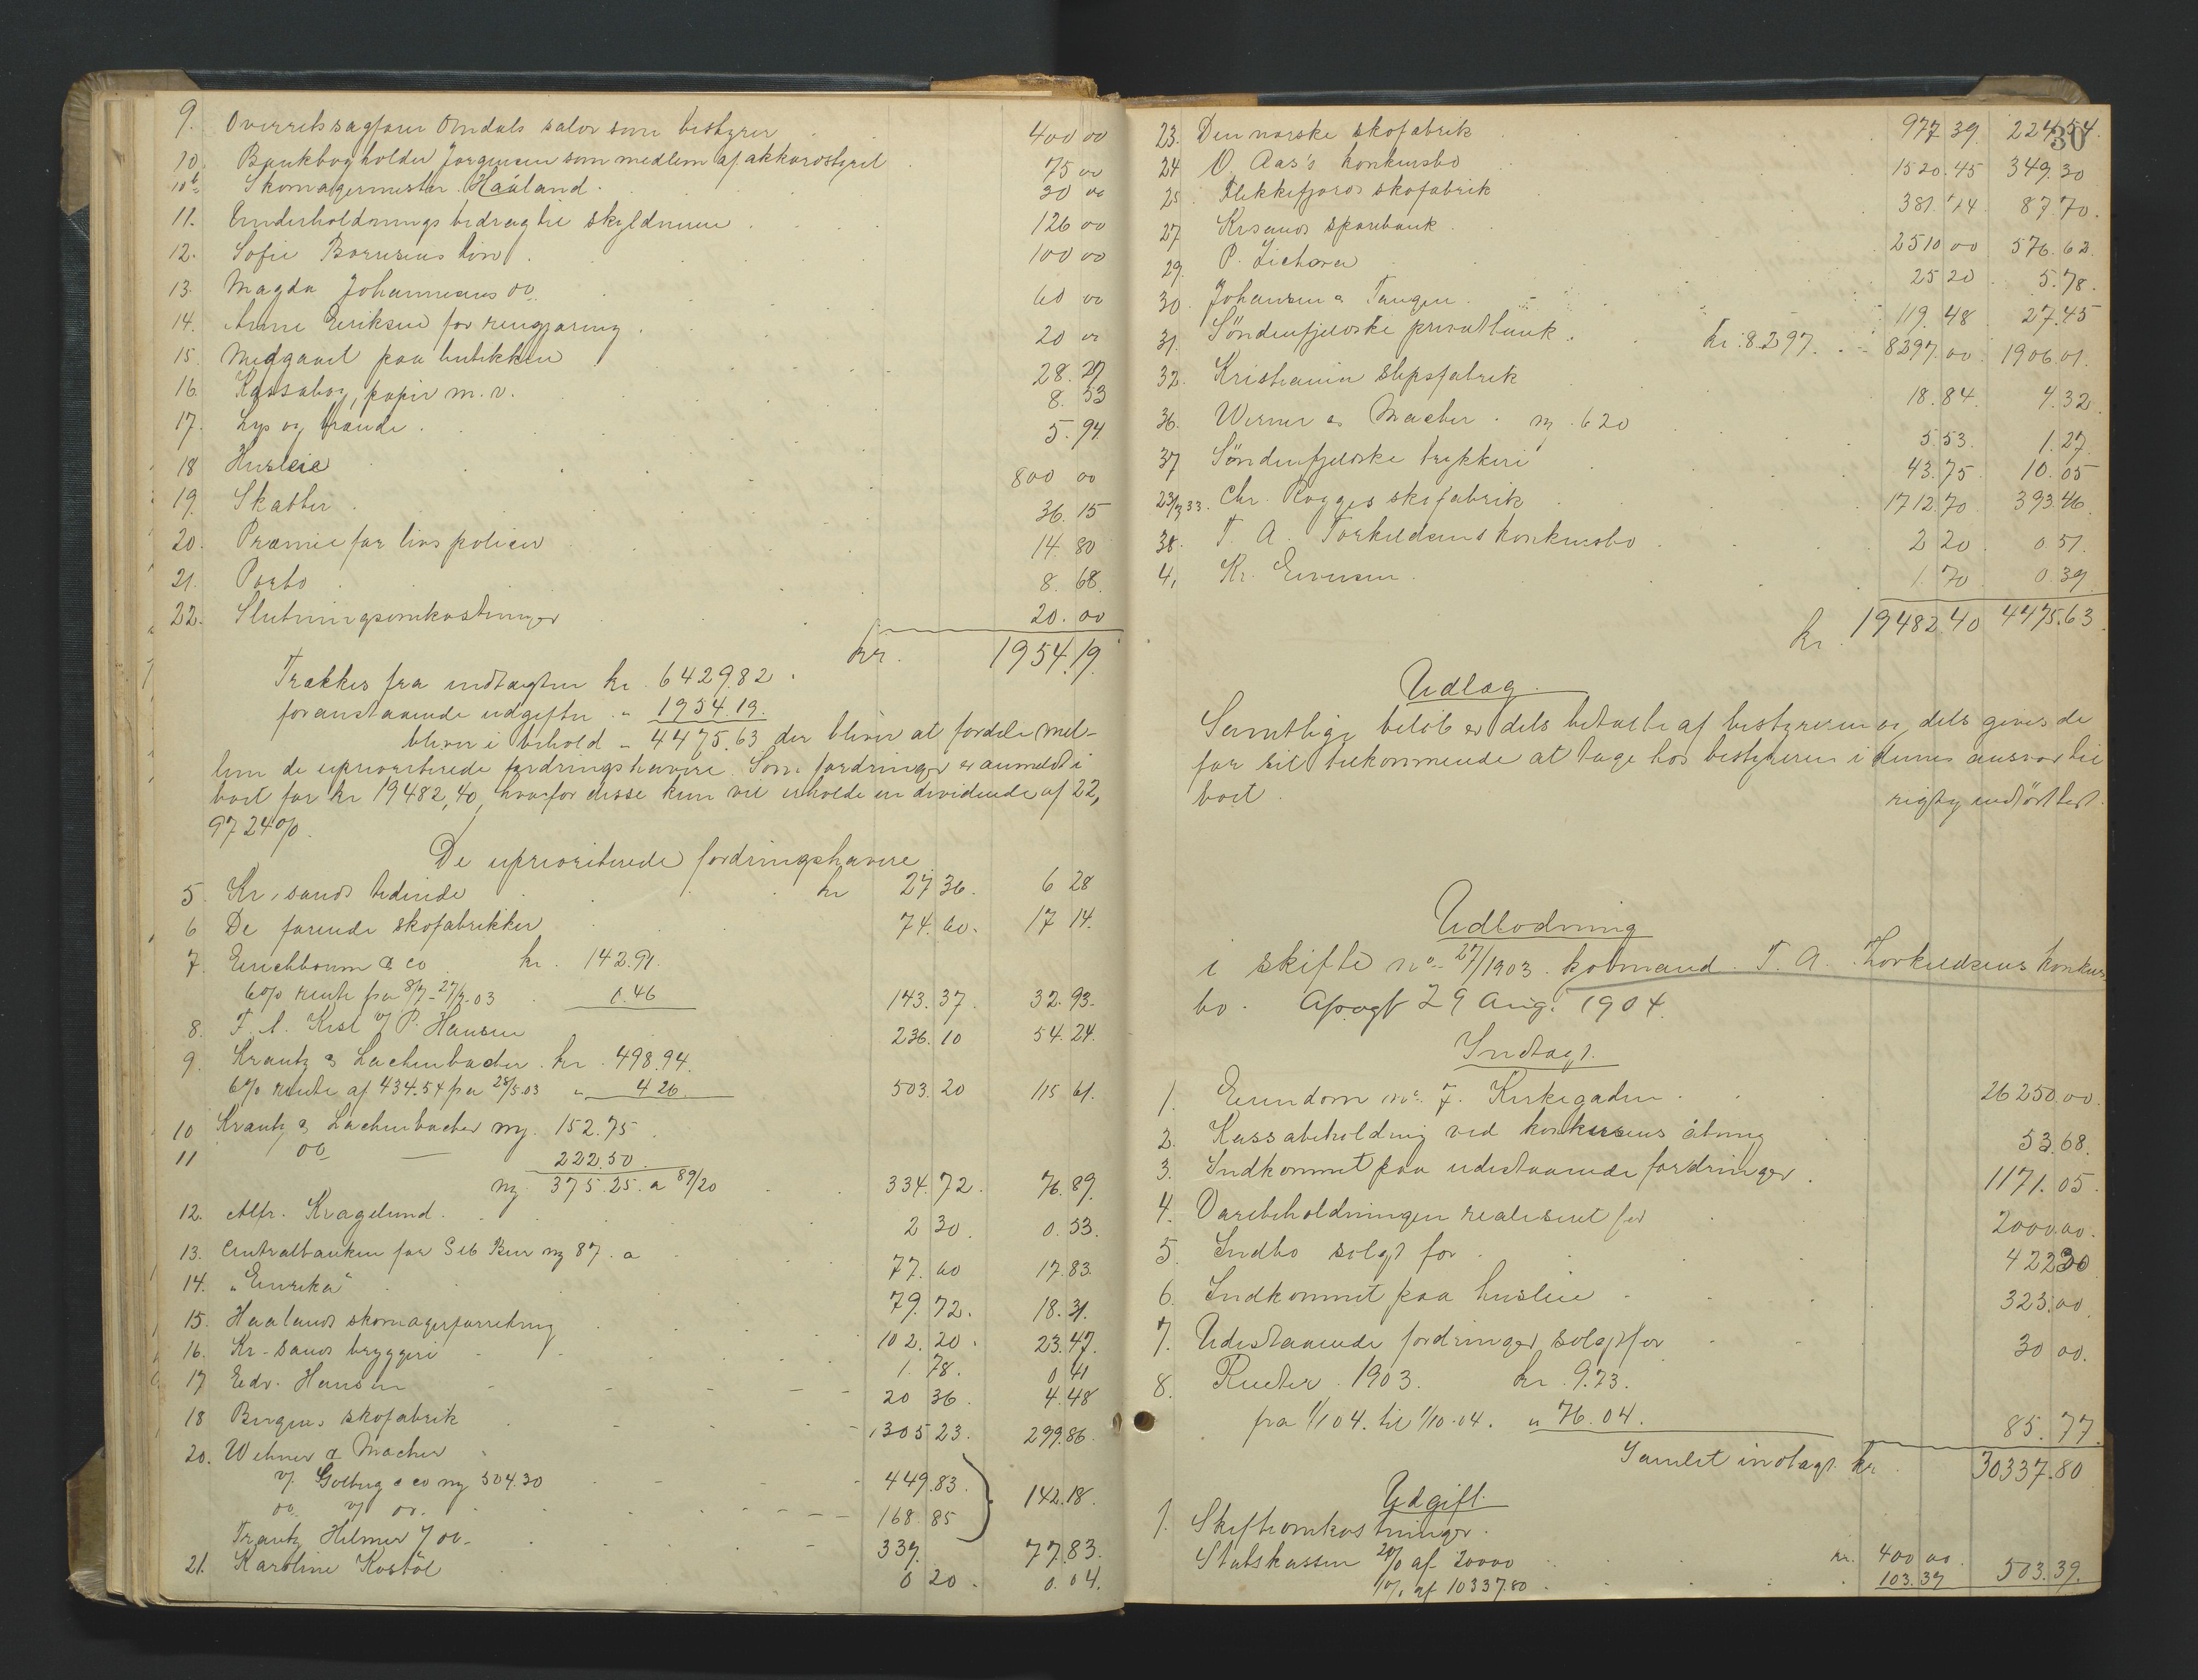 9. Overretssagfører Omdals salær som bestyrer 400 00
10. Bankbogholder Jørgensen som medlem af akkordstyret 75 00
10b Skomagermester Haaland 30 00
11. Underholdningsbidrag til skyldneren 126 00
12. Sofie løn 100 00
13. Magda Johannesens do 60 00
14. Anne Eriksen for rengjøring 20 00
15. Medgaaet paa butikken 28.27
16. Kassabog, papir m.v. 8.53
17. Lys og brænde 5.94
18 Husleie 800 00
19. Skatter 36.15
20. Præmie for livspolicer 14.80
21. Porto 8.68
22. Slutningsomkostninger 20.00
kr. 1954.19.
Trækkes fra indtægten kr 6429.82
foranstaaende udgifter " 1954.19.
bliver i behold " 4475.63 der bliver at fordele mel-
lem de uprioriterede fordringshavere. Som fordringer er anmeldt i
boet for kr 19482,40, hvorfor disse kun vil erholde en dividende af 22,
9724%.
De uprioriterede fordringshavere
5. Kr,sands tidende kr 27 36. 6 28
6 De forende skofabrikker 74.60. 17 14.
7. Eerichboum & co kr. 142.91.
6% rente fra 8/7-27/7.03 0.46 143.37 32.93.
8. F. A. Krst v/ P. Hansen 236.10 54.24.
9. Krantz & Lachenbacher kr. 498.94.
6% rente af 434.54 fra 28/5.03 " 4 26 503.20 115 61.
10 Krantz & Lachenbacher mg. 152.75
11 do — 222.50
mg. 375.25. a 89/20 334.72. 76.89.
12. Alfr. Kragelund. 2 30. 0.53.
13. Centralbanken for Mg 87. a 77.60 17.83.
14. "Eureka" 79.72. 18.31.
15. Haalands skomagerforretning 102.20. 23.47.
16. Kr-sands bryggeri 1.78. 0 41
17 Edv. Hansen 20 36. 4.48
18 Bergens skofabrik 1305 23. 299.86.
20. Wehner & Macher
v/ Golberg & co mg 504.30 449.83. 142.18.
do v/ do. 168 85
Frantz Hilmer v/ do. 339. 77.83.
21. Karoline Kostøl 0 20. 0.04.
30
23. Den norske skofabrik 977 39. 224.54.
24 O. Aas's konkursbo 1520.45 349.30
25. Flekkefjords skofabrik 381.74 87.70.
27 Krsands sparebank 2510 00 576.62.
29. P. 25 20 5.78.
30. Johansen & Tangen 119.48 27.45
31. Søndenfjeldske privatbank. kr: 8297. 8297.00 1906.01.
32. Kristiania slipsfabrik 18.84. 4.32.
36. Werner & Macher. mg. 620 5.53. 1.27.
37 Søndenfjeldske trykkeri 43.75. 10.05
23/33. Chr. Rogges skofabrik 1712.70 393.46.
38. T. A. Torkildsens konkursbo 2 20. 0.51.
4, Kr. Eversen. 1.70 0.39
kr. 19482.40 4475.63.
Udlæg.
Samtlige beløb er dels betalte af bestyreren og dels gives de
for sit tilkommende at tage hos bestyreren i dennes ansvar til
boet.
rigtig indført
Udlodning
i skifte no. 27/1903. kobmand T. A. Torkildsens konkurs
bo. Afsagt 29 Aug. 1904.
Indtægt.
1. Eiendom no. 7. Kirkegaden 26250.00.
2. Kassabeholdning ved konkursens åbning 53.68.
3. Indkommet paa udestaaende fordringer 1171.05.
4. Varebeholdningen realiseret for 2000.00.
5. Indbo solgt for 42230
6. Indkommet paa husleie 325.00.
7. Udestaaende fordringer solgt for 30 00.
8. Renter 1903. kr. 9.73.
fra 1/1 04. til 1/10.04. " 76.04. 85.77.
Samlet indtægt kr 30337.80
Udgift.
1. Skifteomkostninger.
Statskassen 2% af 20000 kr. 400 00.
1% af 10337.80 103.39 503.39.